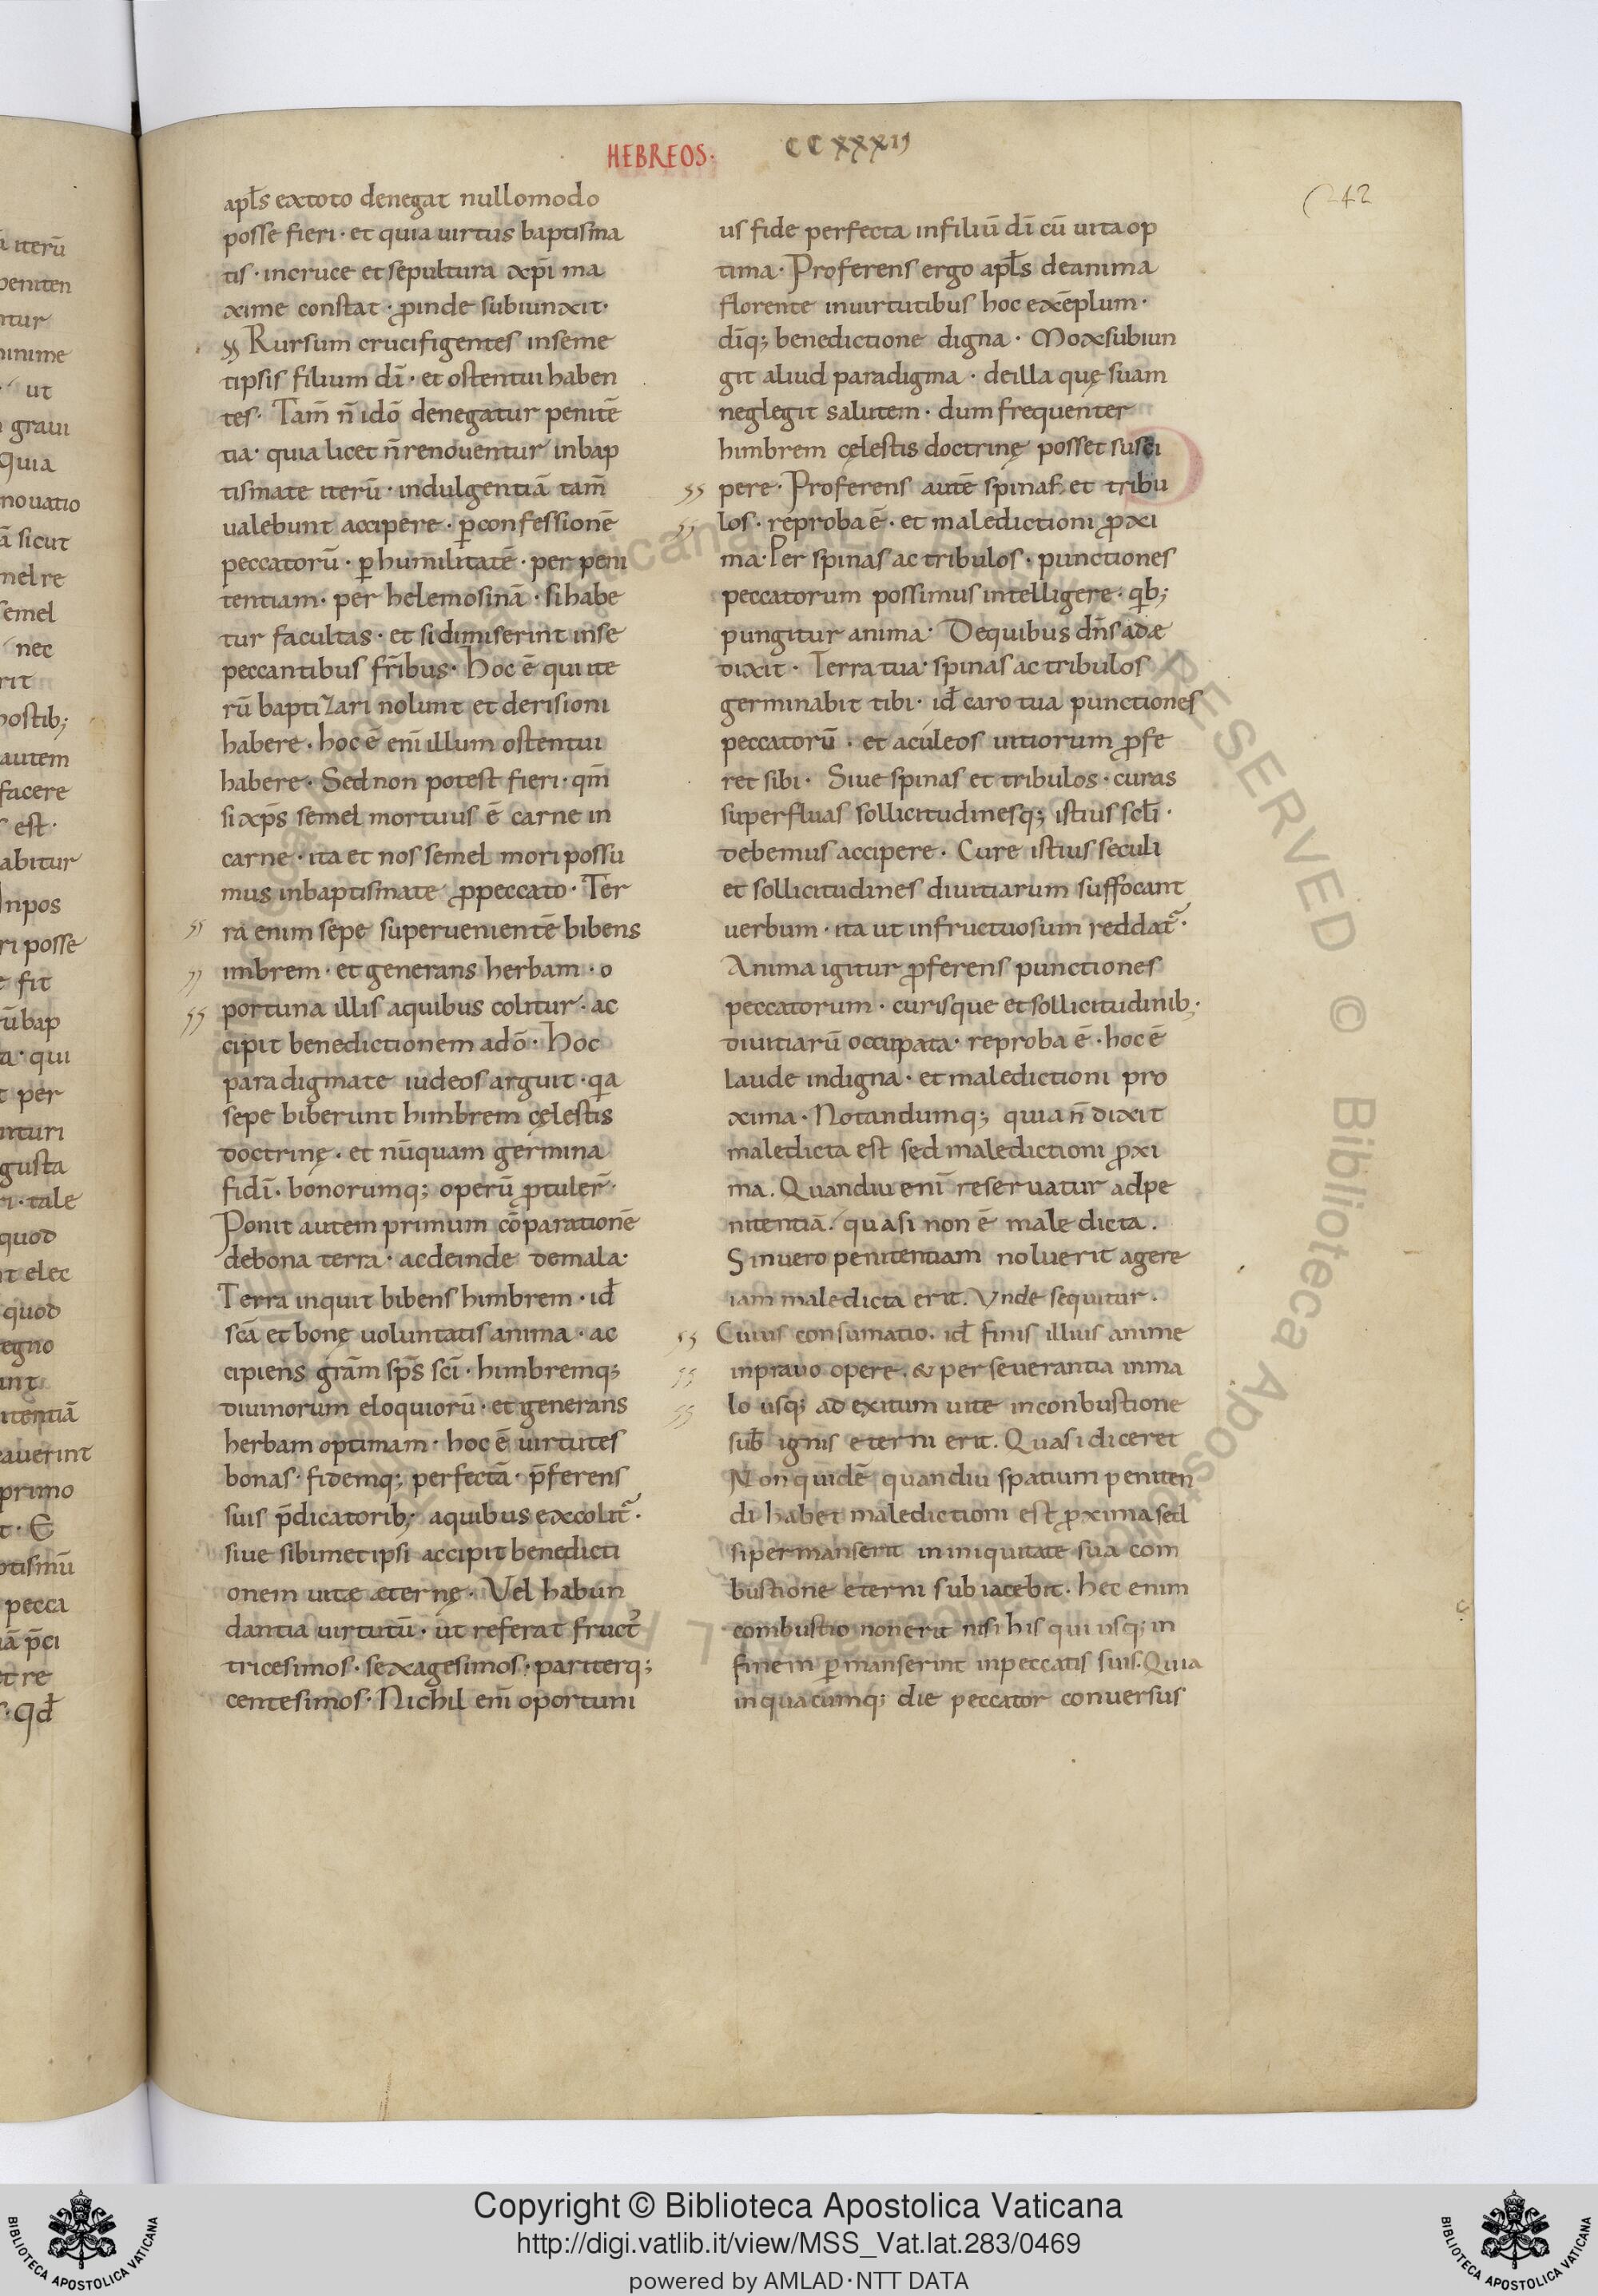 HEBREOS· CCXXXIIꝰ
242
apl̄s extoto denegat nullomodo
posse fieri· et quia uirtus baptisma
tis· incruce et sepultura xp̄i ma
xime constat· ꝓinde subiunxit·
Rursum crucifigentes inseme
tipsis filium dī· et ostentui haben
tes· Tam̄ n̄ idō denegatur penitē
tia· quia licet n̄ renouentur inbap
tismate iterū· indulgentiā tam̄
ualebunt accipere· ꝑconfessionē
peccatorū· ꝑhumilitatē· per peni
tentiam· per helemosinā· si habe
tur facultas· et si dimiserint inse
peccantibus fr̄ibus· Hoc ē qui ite
rū baptizari nolunt et derisioni
habere· hoc ē eni̅ illum ostentui
habere· Sed non potest fieri· qm̄
si xp̄s semel mortuus ē carne in
carne· ita et nos semel mori possu
mus inbaptismate ꝓpeccato· Ter
ra enim sepe superuenientē bibens
imbrem· et generans herbam· o
portuna illis aquibus colitur· ac
cipit benedictionem adō· Hoc
paradigmate iudeos arguit· qa
sepe biberunt himbrem cęlestis
doctrinę· et nūquam germina
fidī· bonorumq; operū ꝓtuler̄·
Ponit autem primum cōparationē
debona terra· acdeinde demala·
Terra inquit bibens himbrem· id̄
scā et bonę uoluntatis anima· ac
cipiens grām sp̄s scī· himbremq;
diuinorum eloquiorū· et generans
herbam optimam· hoc ē uirtutes
bonas· fidemq; perfectā· p̄ferens
suis p̄dicatorib; aquibus excolit᷑·
siue sibimet ipsi accipit benedicti
onem uitæ æternę· Vel habun
dantia uirtutū· ut referat fruct᷑
tricesimos· sexagesimos· pariterq;
centesimos· Nichil eni̅ oportuni
us fide perfecta infiliū dī cū uita op
tima· Proferens ergo apl̄s deanima
florente inuirtutibus hoc exēplum·
dīq; benedictione digna· Mox subiun
git aliud paradigma· deilla quę suam
neglegit salutem· dum frequenter
himbrem cęlestis doctrinę posset susci
pere· Proferens autē spinas et tribu
los· reproba ē· et maledictioni ꝓxi
ma· Per spinas ac tribulos· punctiones
peccatorum possimus intelligere· qib;
pungitur anima· De quibus dn̄s adæ
dixit· Terra tua· spinas ac tribulos
germinabit tibi· id̄ caro tua punctiones
peccatorū· et aculeos uitiorum ꝓfe
ret sibi· Siue spinas et tribulos· curas
superfluas sollicitudinesq; istius scl̄i·
debemus accipere· Cure istius seculi
et sollicitudines diuitiarum suffocant
uerbum· ita ut infructuosum reddat᷑·
Anima igitur ꝓferens punctiones
peccatorum· curisque et sollicitudinib;·
diuitiarū occupata· reproba ē· hoc ē
laude indigna· et maledictioni pro
xima· Notandumq; quia n̄ dixit
maledicta est sed maledictioni ꝓxi
ma. Quandiu eni̅ reseruatur adpe
nitentiā. quasi non ē maledicta.
Sin uero penitentiam noluerit agere
iam maledicta erit. Vnde sequitur·
Cuius consumatio. id̄ finis illius anime
inprauo opere. & perseuerantia inma
lo usq; ad exitum uite inconbustione
sub̄ ignis eterni erit. Quasi diceret
Non quidē quandiu spatium peniten
di habet maledictioni est ꝓxima sed
si permanserit in iniquitate sua com
bustione eterni sub iacebit. hec enim
combustio non erit nisi his qui usq; in
finem ꝑmanserint inpeccatis suis. Quia
inquacumq; die peccator conuersus
ā iterū
peniten
ntur
minime
ut
graui
Quia
nouatio
ā sicut
mel re
semel
nec
rit
hostib;
autem
facere
est·
abitur
Inpos
ri posse
e fit
rū bap
a· qui
t per
nituri
gusta
ri· tale
quod
nt elec
quod
egno
unt
itentiā
eauerint
primo
t· E
ptismū
pecca
iā p̄ci
et re
s· Qd̄
ALL RIGHTS RESERVED © Biblioteca Apostolica Vaticana
Copyright © Biblioteca Apostolica Vaticana
http://digi.vatlib.it/view/MSS_Vat.lat.283/0469
powered by AMLAD·NTT DATA
BIBLIOTECA APOSTOLICA VATICANA
BIBLIOTECA APOSTOLICA VATICANA